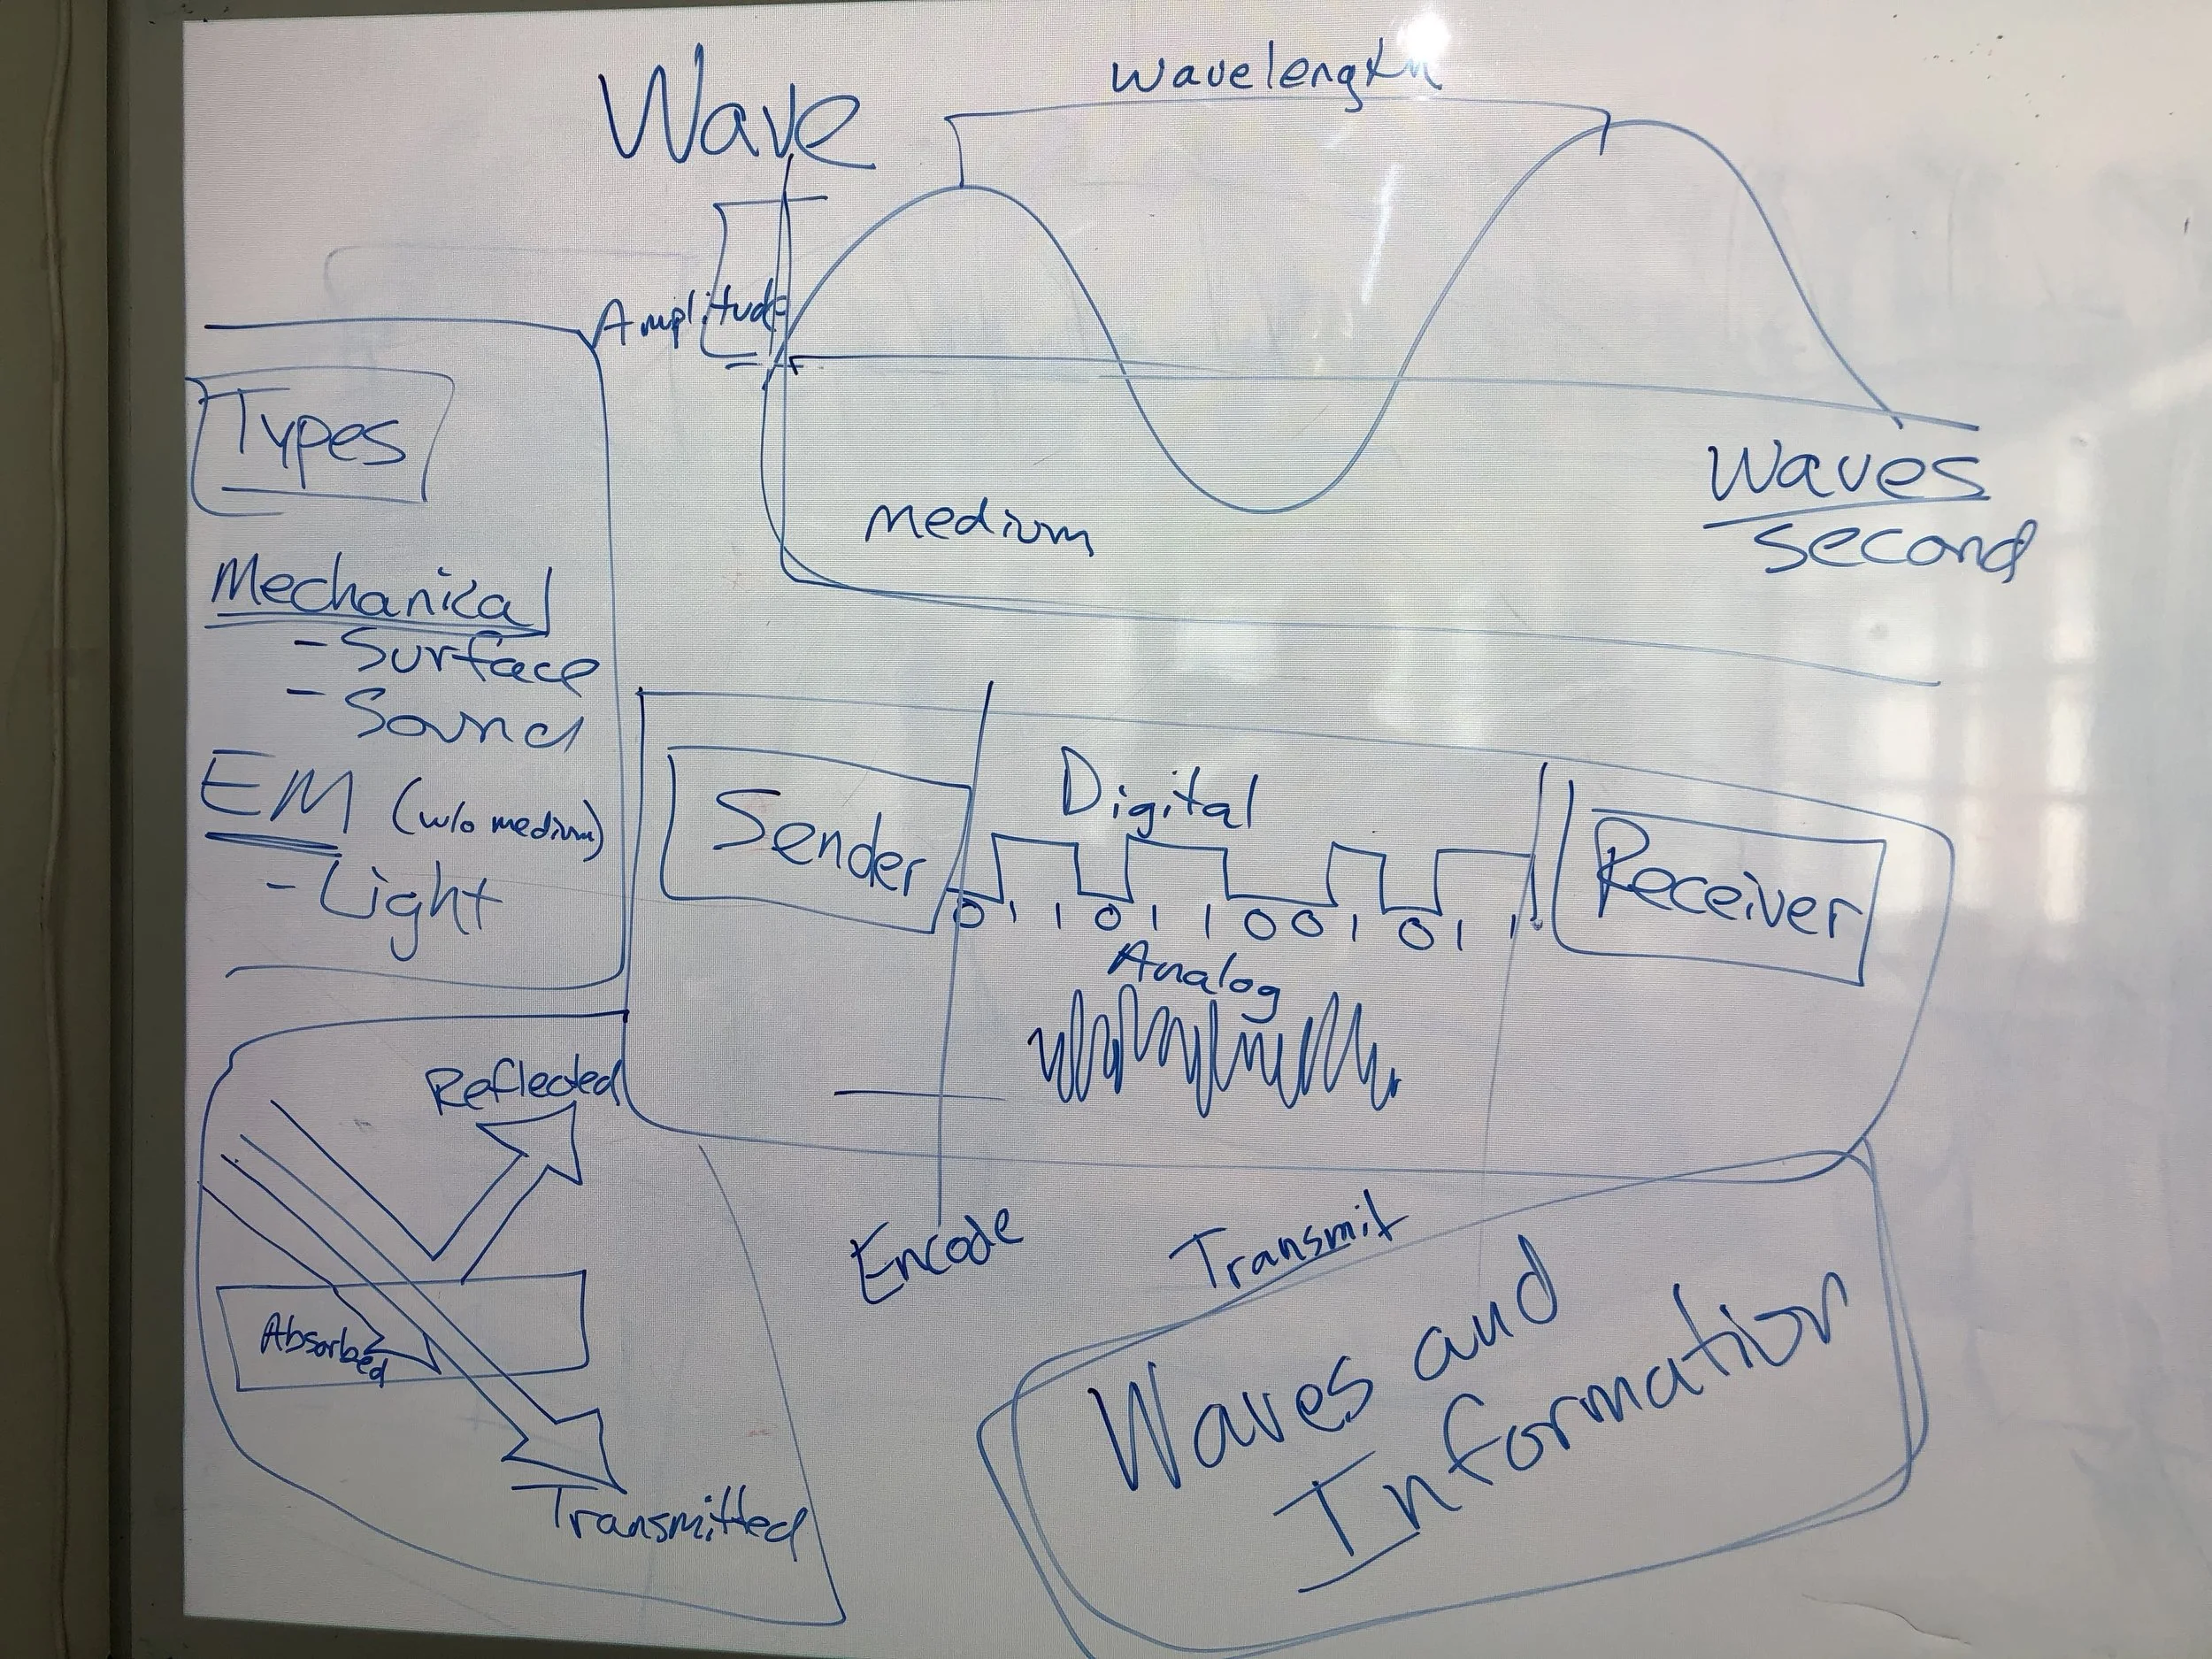 Wave
wavelength
Amplitude
medium
Waves
second
Types
Mechanical
- Surface
- Sound
EM (w/o medium)
- Light
Sender
Digital
0 1 1 0 1 1 0 0 1 0 1 1
Analog
Receiver
Encode
Transmit
Reflected
Absorbed
Transmitted
Waves and
Information